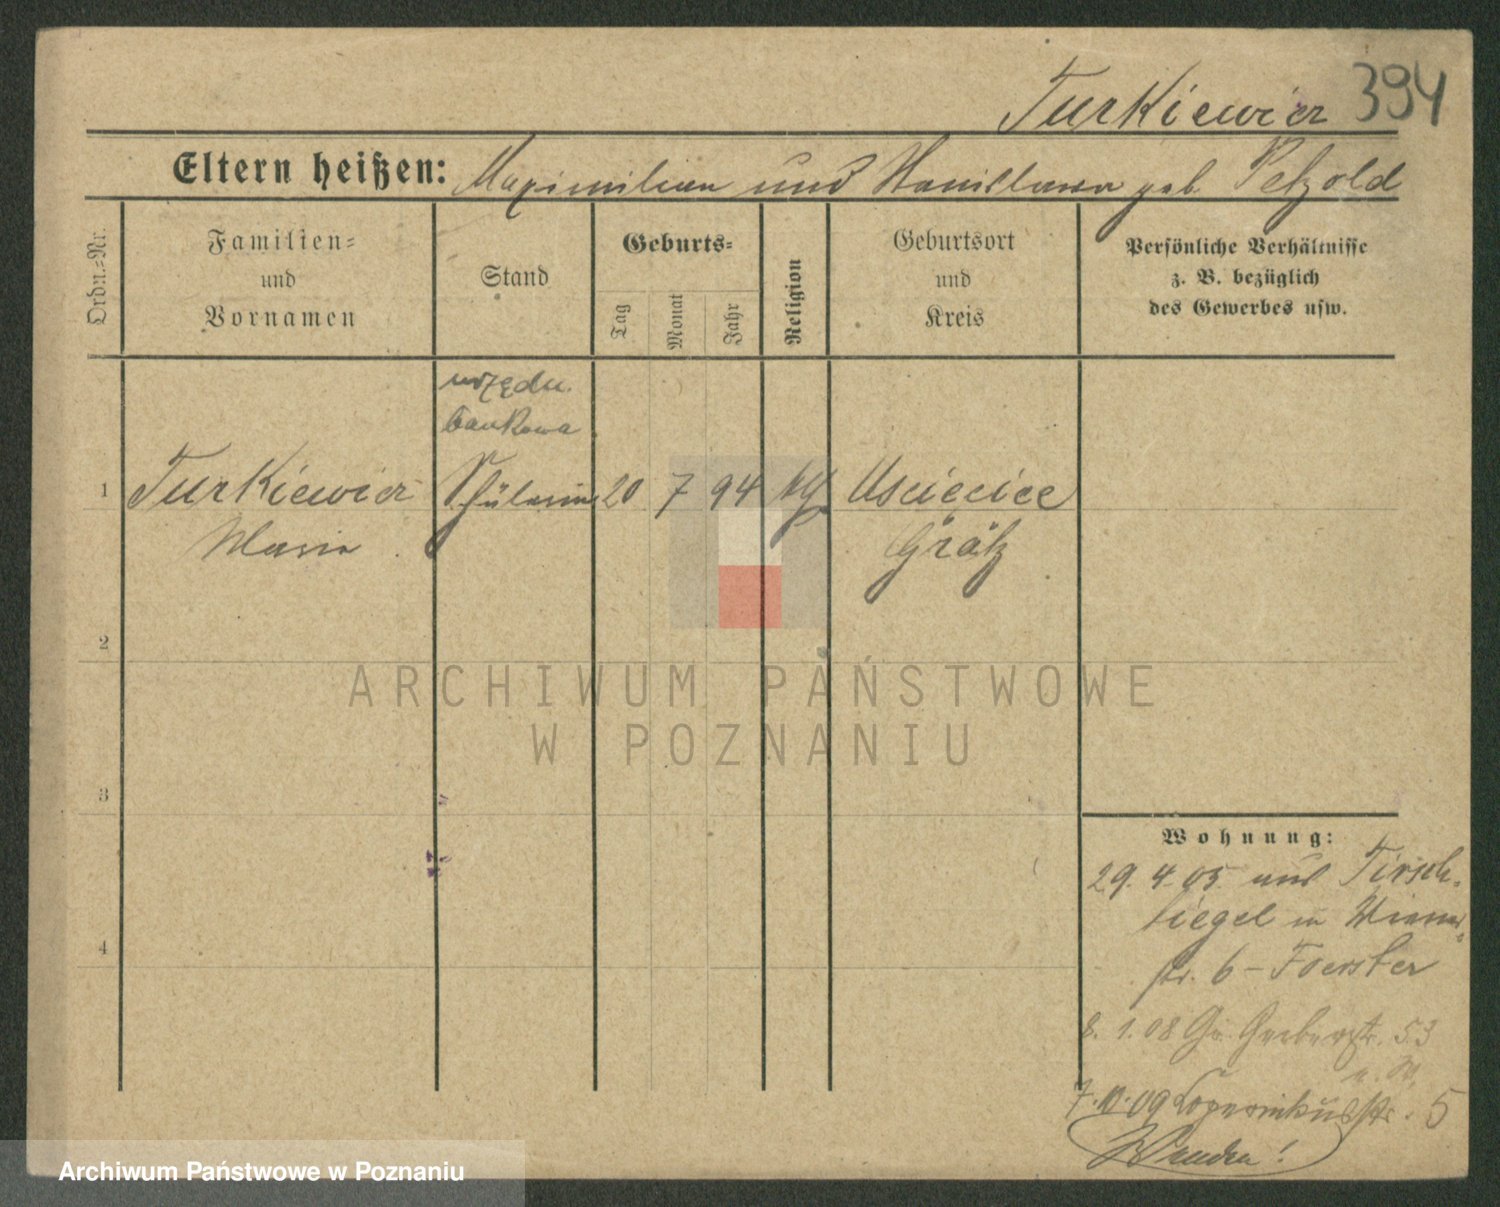 Turkiewicz 394
Eltern heißen: Maximilian und Stanislawa geb. Petzold
Ordn.=Nr.
Familien=
und
Vornamen
Stand
Geburts=
Tag
Monat
Jahr
Religion
Geburtsort
und
Kreis
Persönliche Verhältnisse
z. B. bezüglich
des Gewerbes usw.
urzędn.
bankowa
1 Turkiewicz Schülerin 20 7 94 Uścięcice
Maria Grätz
2
3
4
Wohnung:
29. 4. 05. aus Tirsch-
tiegel in
str. 6 - Foerster
8. 1. 08 Gr. Gerberstr. 53
7. 10. 09 Kopernikusstr. 5
Wenden!
ARCHIWUM PAŃSTWOWE
W POZNANIU
Archiwum Państwowe w Poznaniu